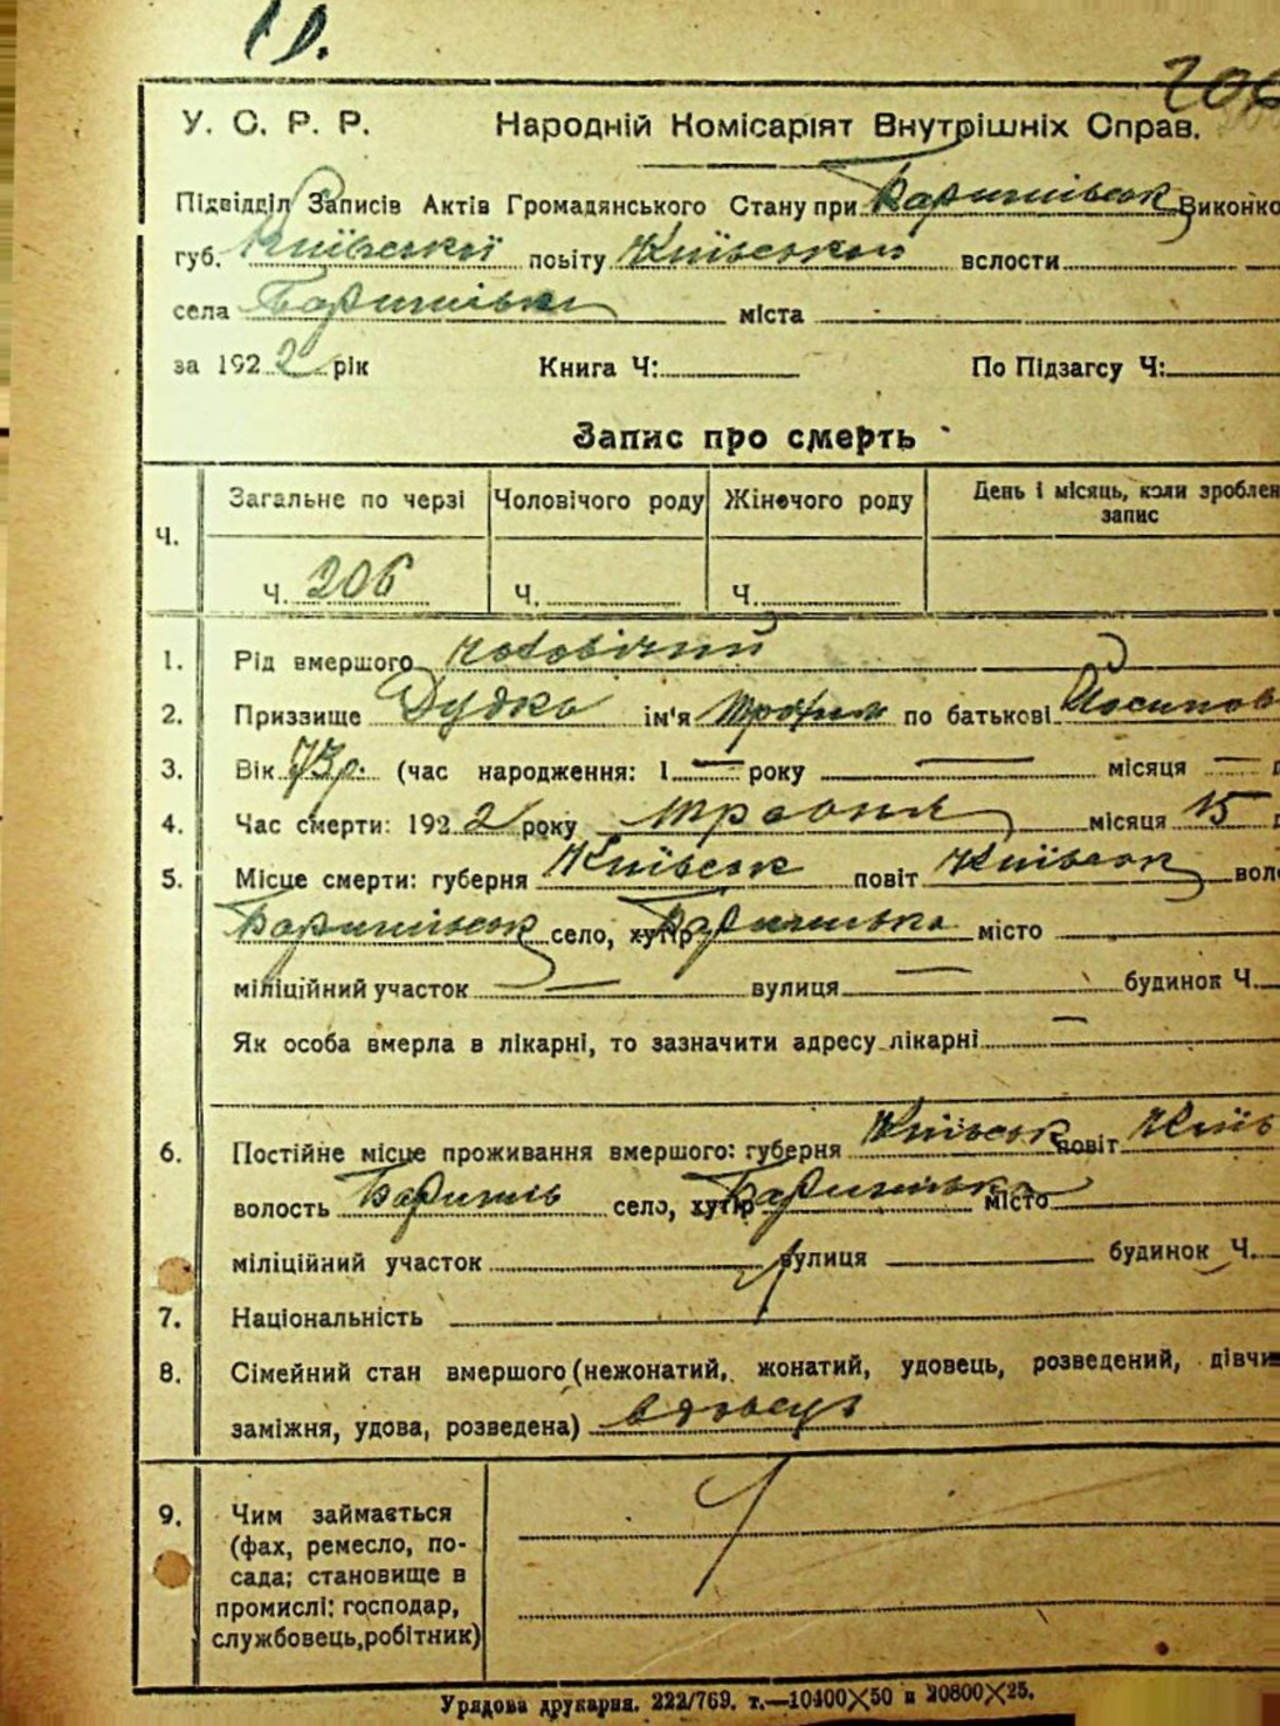 206
У. С. Р. Р. Народній Комісаріят Внутрішніх Справ.
Підвідділ Записів Актів Громадянського Стану при Баришівськ Виконко
губ. Київської повіту Київської вслости
села Баришівки міста
за 1922 рік Книга Ч: По Підзагсу Ч:
Запис про смерть
Ч. Загальне по черзі Чоловічого роду Жіночого роду День і місяць, коли зроблен
запис
Ч. 206 Ч. Ч.
1. Рід вмершого чоловічий
2. Приззище Дудка ім'я Трофим по батькові Йосипов
3. Вік 73 р. (час народження: 1 — року — місяця —
4. Час смерти: 1922 року травня місяця 15
5. Місце смерти: губерня Київськ повіт Київськ вол
Баришівськ село, хутір Баришівка місто
міліційний участок — вулиця — будинок Ч.
Як особа вмерла в лікарні, то зазначити адресу лікарні —
6. Постійне місце проживання вмершого: губерня Київськ повіт Київ
волость Баришів село, хутір Баришівка місто
міліційний участок вулиця будинок Ч.
7. Національність
8. Сімейний стан вмершого (нежонатий, жонатий, удовець, розведений, дівчи
заміжня, удова, розведена) вдовець
9. Чим займається
(фах, ремесло, по-
сада; становище в
промислі: господар,
службовець, робітник)
Урядова друкарня. 222/769. т.—10400×50 и 20800×25.